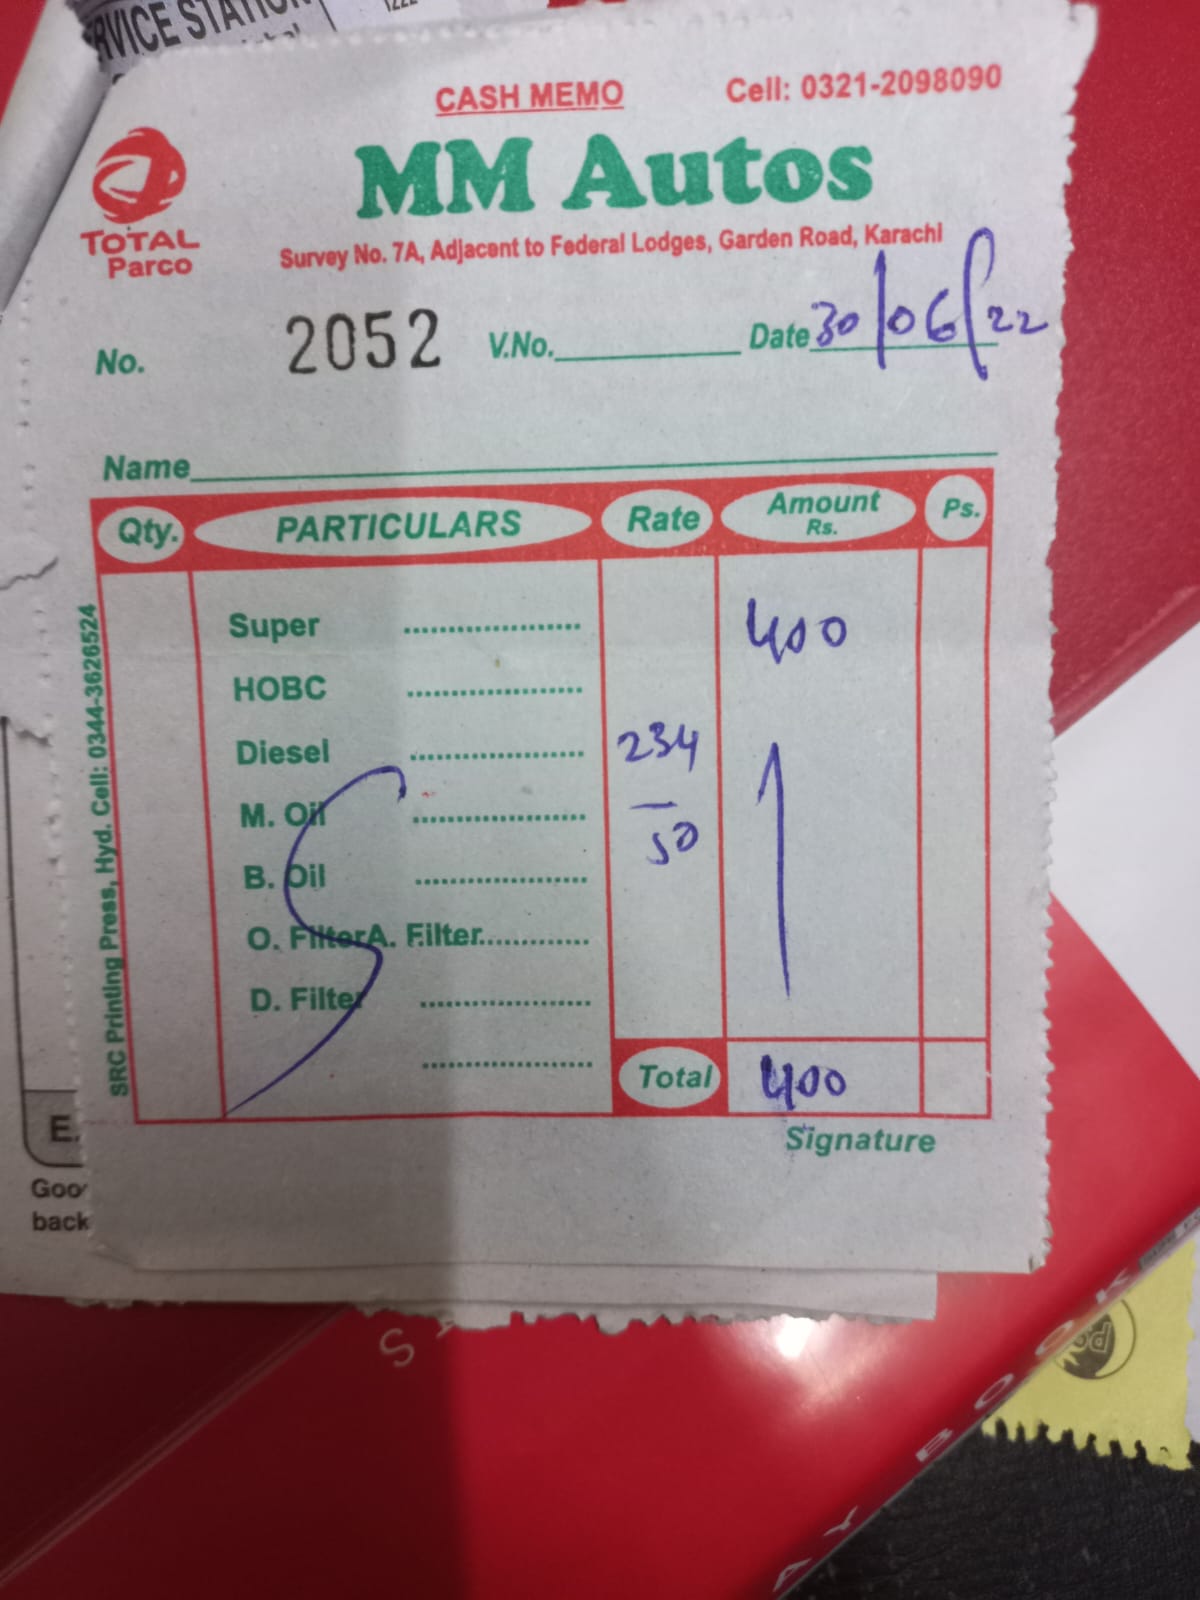 RVICE STATION
CASH MEMO
Cell: 0321-2098090
TOTAL
Parco
MM Autos
Survey No. 7A, Adjacent to Federal Lodges, Garden Road, Karachi
No. 2052 V.No. Date 30/06/22
Name
Qty. PARTICULARS Rate Amount Rs. Ps.
Super 400
HOBC
Diesel 234
M. Oil
50
B. Oil
O. FilterA. Filter
D. Filter
Total 400
Signature
SRC Printing Press, Hyd. Cell: 0344-3626524
E.
Goo
back
AY BOOK